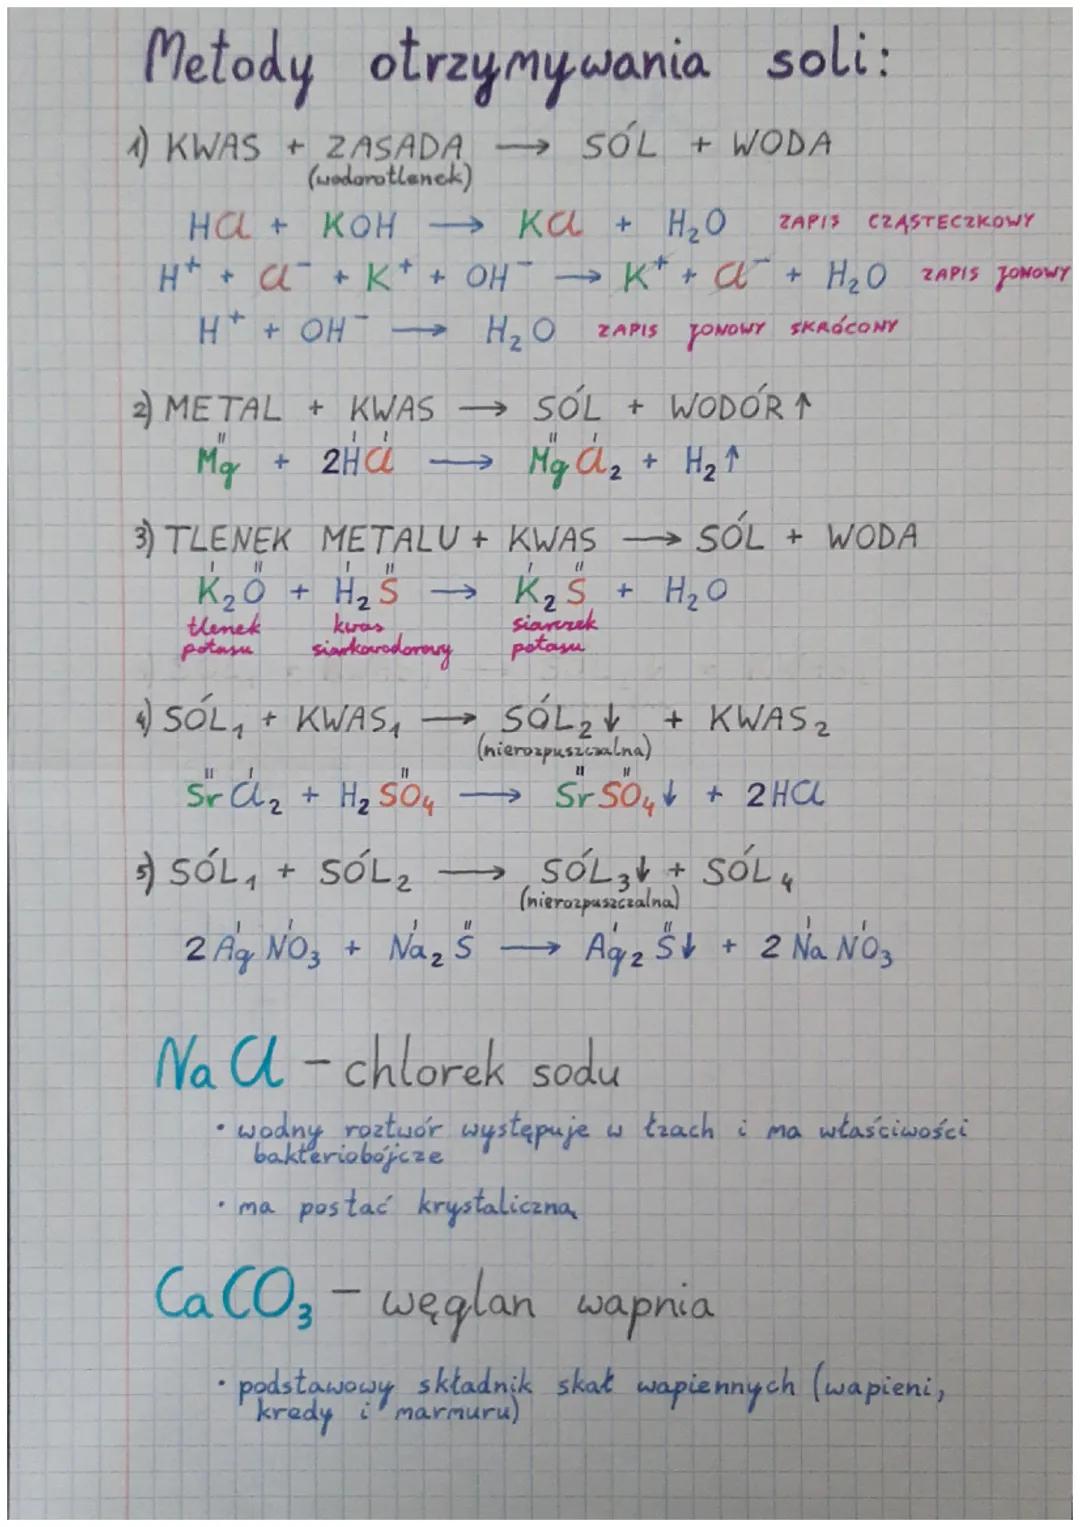 Metody otrzymywania soli:
1) KWAS + ZASADA → SÓL + WODA
(wodorotlenek)
HCl + KOH → KCl + H₂O ZAPIS CZĄSTECZKOWY
H⁺ + Cl⁻ + K⁺ + OH⁻ → K⁺ + Cl⁻ + H₂O ZAPIS JONOWY
H⁺ + OH⁻ → H₂O ZAPIS JONOWY SKRÓCONY
2) METAL + KWAS → SÓL + WODÓR ↑
Mg + 2HCl → MgCl₂ + H₂↑
3) TLENEK METALU + KWAS → SÓL + WODA
K₂O + H₂S → K₂S + H₂O
tlenek kwas siarczek
potasu siarkowodorowy potasu
4) SÓL₁ + KWAS₁ → SÓL₂↓ + KWAS₂
(nierozpuszczalna)
SrCl₂ + H₂SO₄ → SrSO₄↓ + 2HCl
5) SÓL₁ + SÓL₂ → SÓL₃↓ + SÓL₄
(nierozpuszczalna)
2AgNO₃ + Na₂S → Ag₂S↓ + 2NaNO₃
NaCl - chlorek sodu
• wodny roztwór występuje w łzach i ma właściwości
bakteriobójcze
• ma postać krystaliczną
CaCO₃ - węglan wapnia
• podstawowy składnik skał wapiennych (wapieni,
kredy i marmuru)